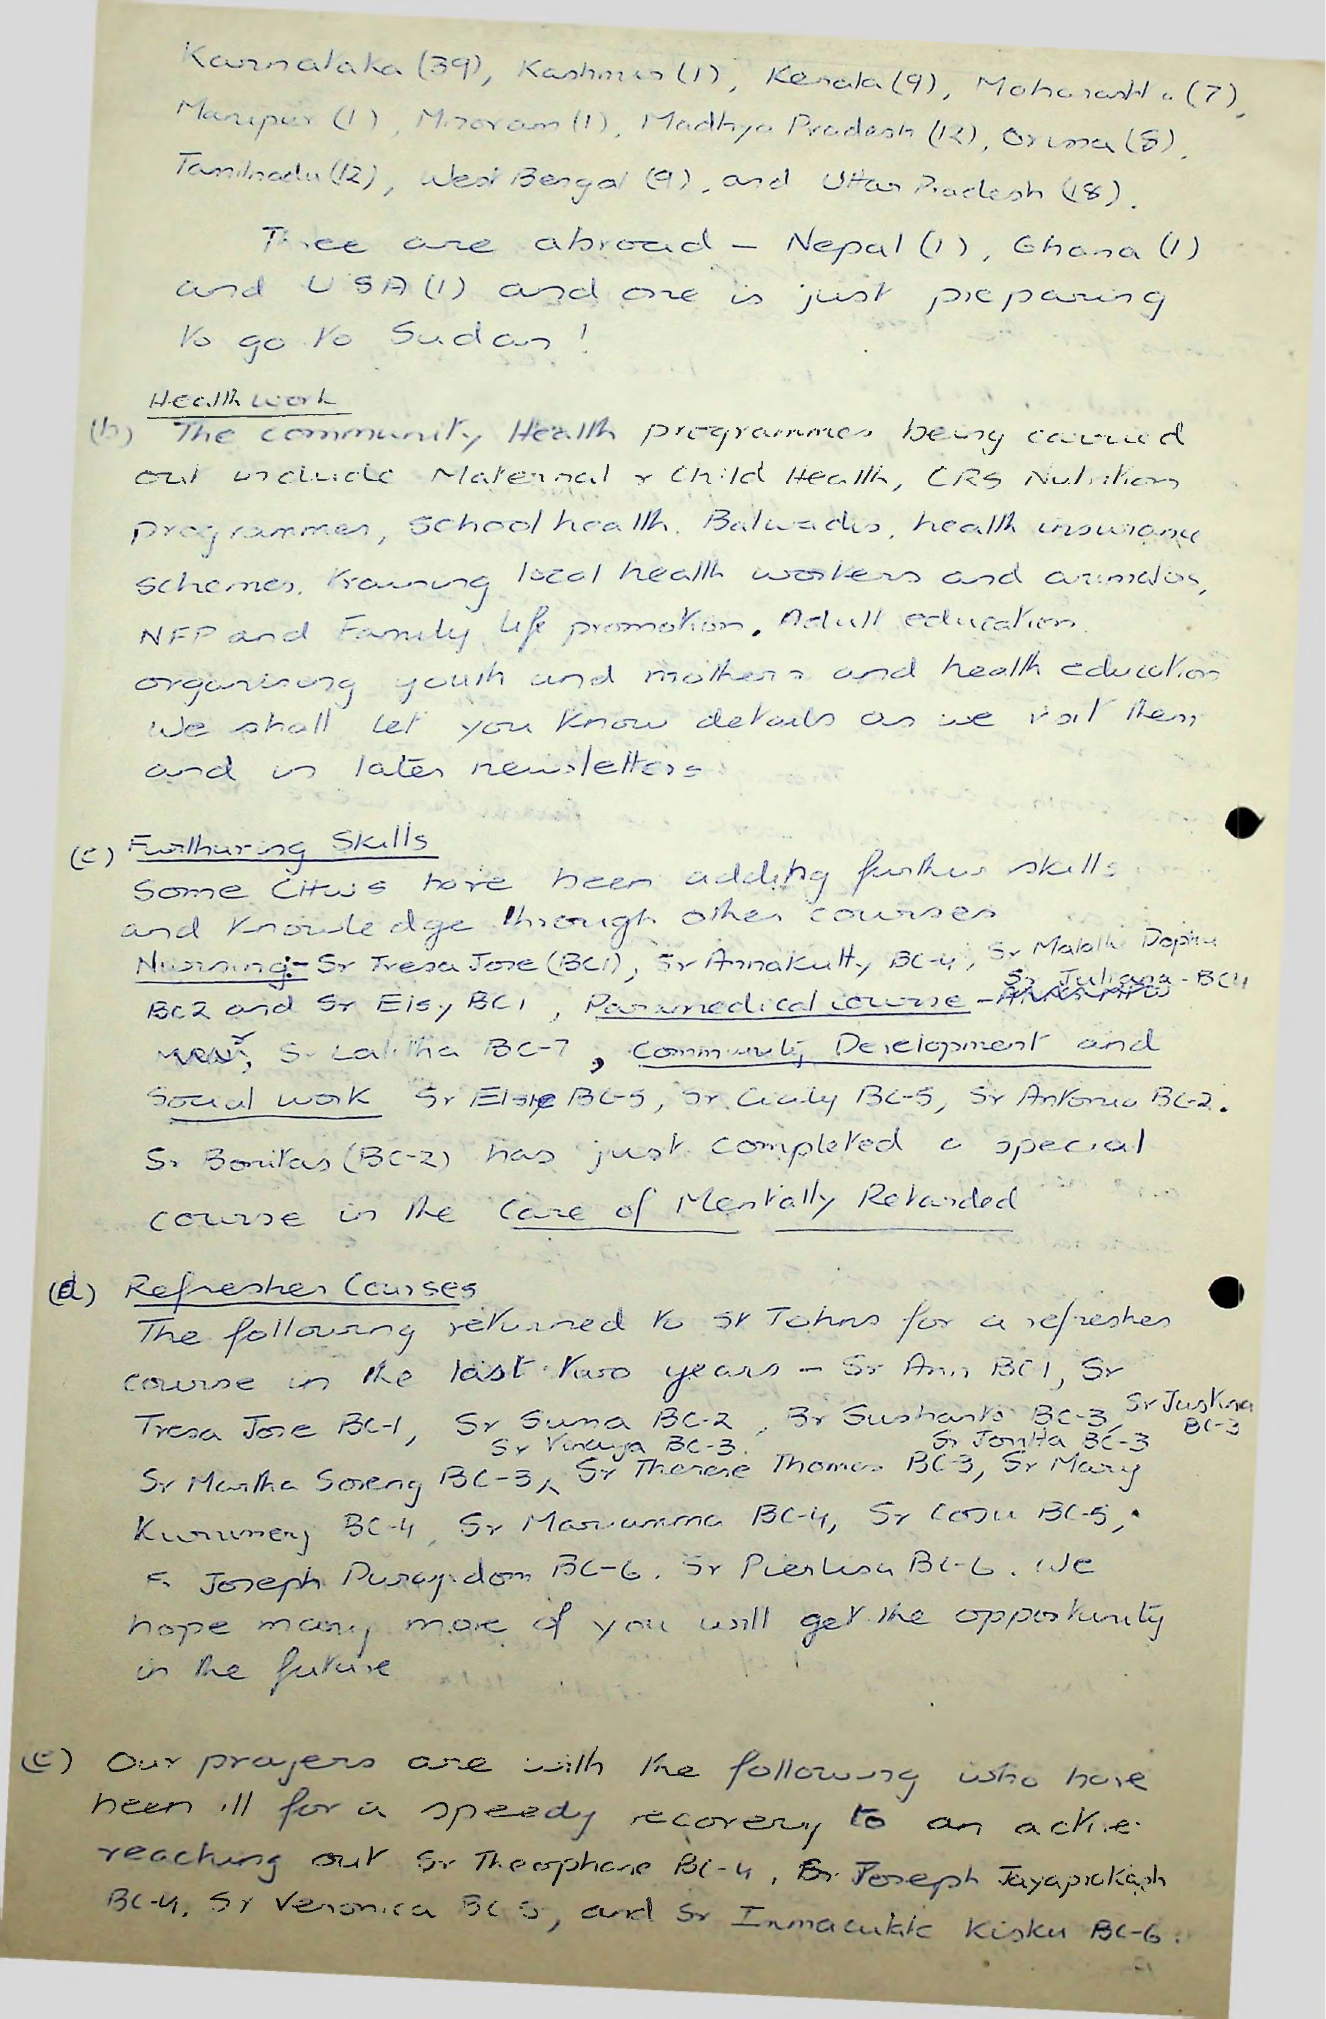 Karnataka (39), Kashmir (1), Kerala (9), Maharashtra (7),
Manipur (1), Mizoram (1), Madhya Pradesh (12), Orissa (8),
Tamilnadu (12), West Bengal (9), and Uttar Pradesh (18).
Three are abroad – Nepal (1), Ghana (1)
and USA (1) and one is just preparing
to go to Sudan!
Health work
(b) The community Health programmes being carried
out include Maternal & Child Health, CRS Nutrition
programmes, school health, Balwadis, health insurance
schemes, training local health workers and animators,
NFP and Family life promotion, Adult education
organising youth and mothers and health education
We shall let you know details as we visit them
and in later newsletters
(c) Furthuring Skills
Some CHWs have been adding further skills
and knowledge through other courses
Nursing:- Sr Tresa Jose (BC1), Sr Annakutty BC-4, Sr Malathi
BC2 and Sr Elsy BC1, Paramedical course - Sr Juliana - BC4
Sr Lalitha BC-7, Community Development and
Social work Sr Elsie BC-5, Sr. Cicily BC-5, Sr Antonia BC-2.
Sr Bonitas (BC-2) has just completed a special
course in the Care of Mentally Retarded
(d) Refresher Courses
The following returned to St Johns for a refresher
course in the last two years – Sr Ann BC1, Sr
Tresa Jose BC-1, Sr Suma BC-2, Br Sushanto BC-3, Sr Justina BC-3
Sr Vinaya BC-3. Sr Jonita BC-3
Sr Martha Soreng BC-3, Sr Therese Thomas BC-3, Sr Mary
BC-4, Sr Mariamma BC-4, Sr BC-5,
Fr Joseph BC-6. Sr Pierlisa BC-6. We
hope many more of you will get the opportunity
in the future
(e) Our prayers are with the following who have
been ill for a speedy recovery to an active
reaching out Sr Theophane BC-4, Br Joseph Jayaprakash
BC-4, Sr Veronica BC 5, and Sr Immaculate Kisku BC-6.